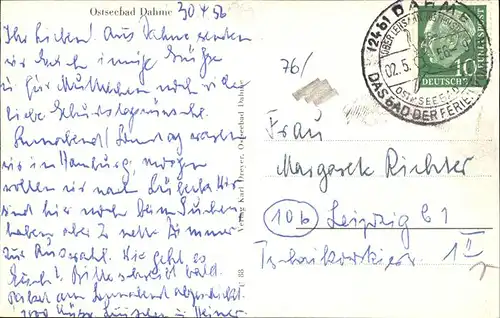 Ostseebad Dahme
30 4 56
Ihr Lieben! Aus Dahme senden
wir Euch innige Grüße
u. für Muttchen noch viele
liebe Geburtstagswünsche.
Sonnabend/Sonntag waren
wir in Hamburg, morgen
wollen wir nach Lübeck. Wir
sind hier noch beim Suchen
haben aber 2 nette Zimmer
zur Auswahl. Wie geht es
Euch? Bitte schreibt bald.
am Sonnabend abgeschickt.
1000 Küsse
Verlag Karl Dreyer, Ostseebad Dahme
88
76/
(24b) DAHME
ÜBER LENSAHN
02.5.56
OSTSEEBAD
DAS BAD DER FERIEN
10
DEUTSCHE BUNDESPOST
Frau
Margarete Richter
(10b) Leipzig C1
Tschaikowskistr. 1 II